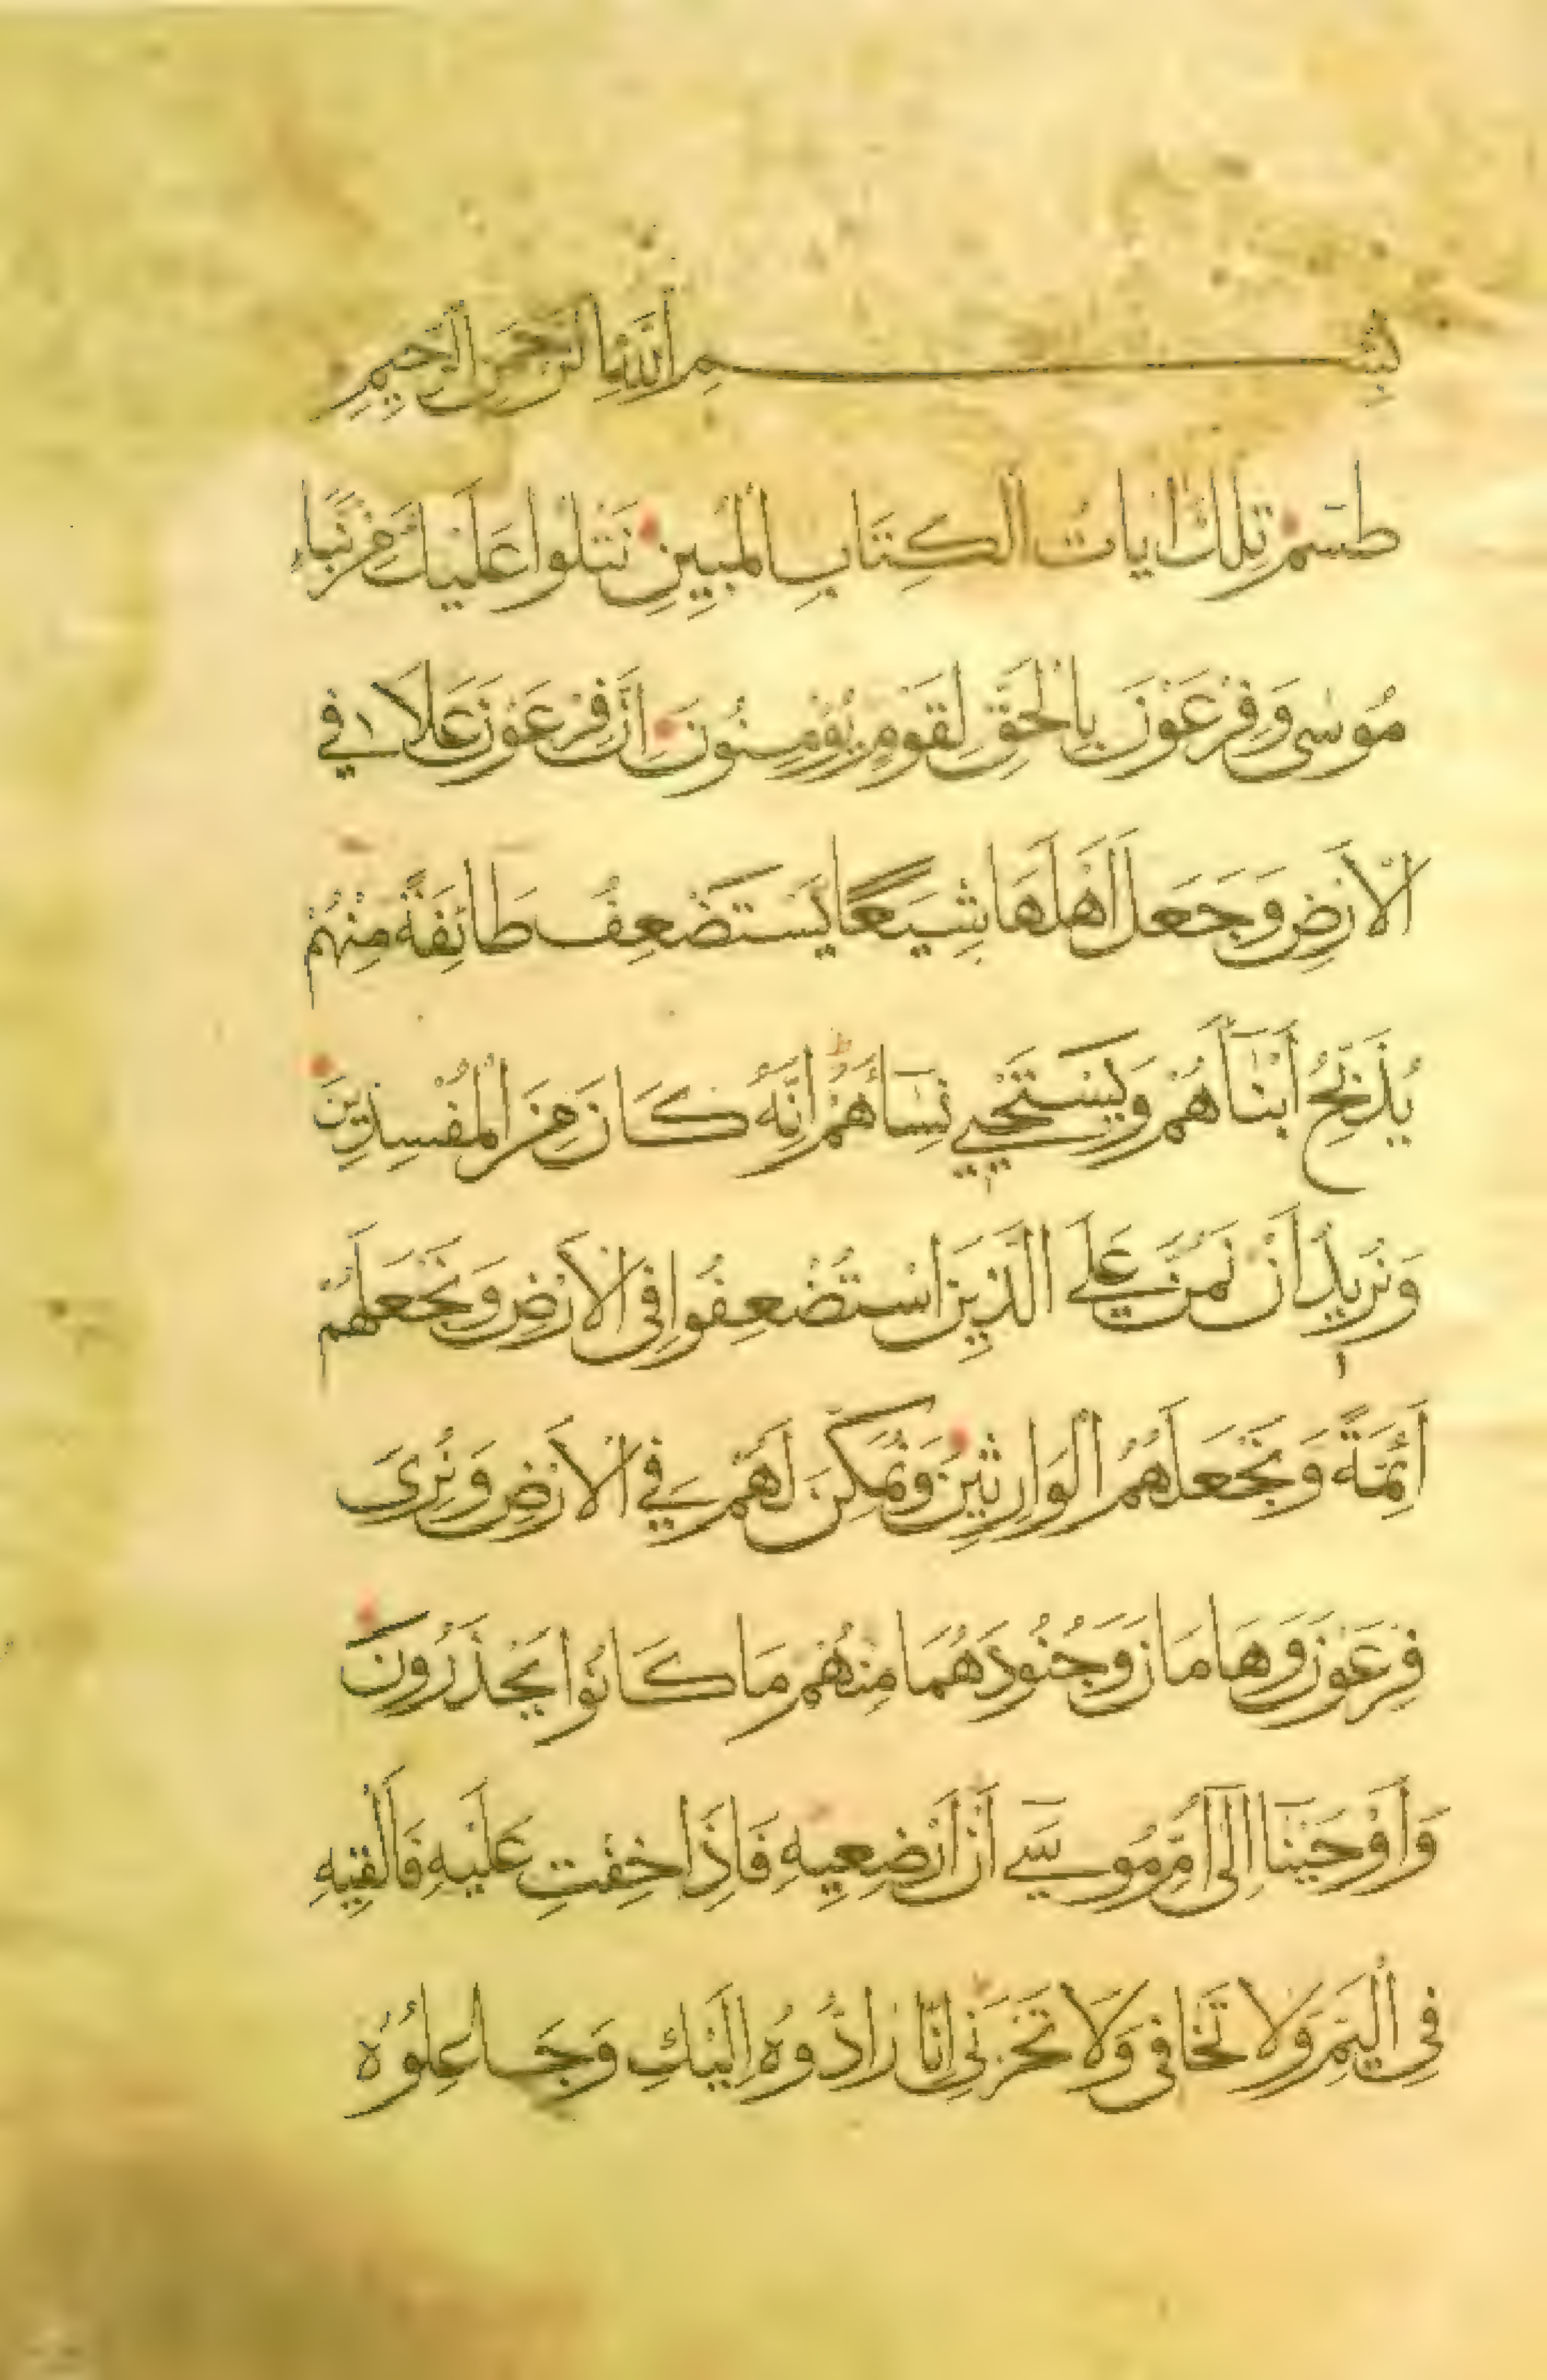 بِسْمِ اللَّهِ الرَّحْمَنِ الرَّحِيمِ
طسم تِلْكَ اٰيَاتُ الْكِتَابِ الْمُبِينِ نَتْلُوا عَلَيْكَ مِنْ نَبَاءِ
مُوسٰى وَفِرْعَوْنَ بِالْحَقِّ لِقَوْمٍ يُؤْمِنُونَ اِنَّ فِرْعَوْنَ عَلَا فِي
الْاَرْضِ وَجَعَلَ اَهْلَهَا شِيَعًا يَسْتَضْعِفُ طَائِفَةً مِنْهُمْ
يُذَبِّحُ اَبْنَاۤءَهُمْ وَيَسْتَحْيِي نِسَاۤءَهُمْ اِنَّهُ كَانَ مِنَ الْمُفْسِدِينَ
وَنُرِيدُ اَنْ نَمُنَّ عَلَى الَّذِينَ اسْتُضْعِفُوا فِي الْاَرْضِ وَنَجْعَلَهُمْ
اَئِمَّةً وَنَجْعَلَهُمُ الْوَارِثِينَ وَنُمَكِّنَ لَهُمْ فِي الْاَرْضِ وَنُرِيَ
فِرْعَوْنَ وَهَامَانَ وَجُنُودَهُمَا مِنْهُمْ مَا كَانُوا يَحْذَرُونَ
وَاَوْحَيْنَا اِلٰى اُمِّ مُوسٰى اَنْ اَرْضِعِيهِ فَاِذَا خِفْتِ عَلَيْهِ فَاَلْقِيهِ
فِي الْيَمِّ وَلَا تَخَافِي وَلَا تَحْزَنِي اِنَّا رَادُّوهُ اِلَيْكِ وَجَاعِلُوهُ